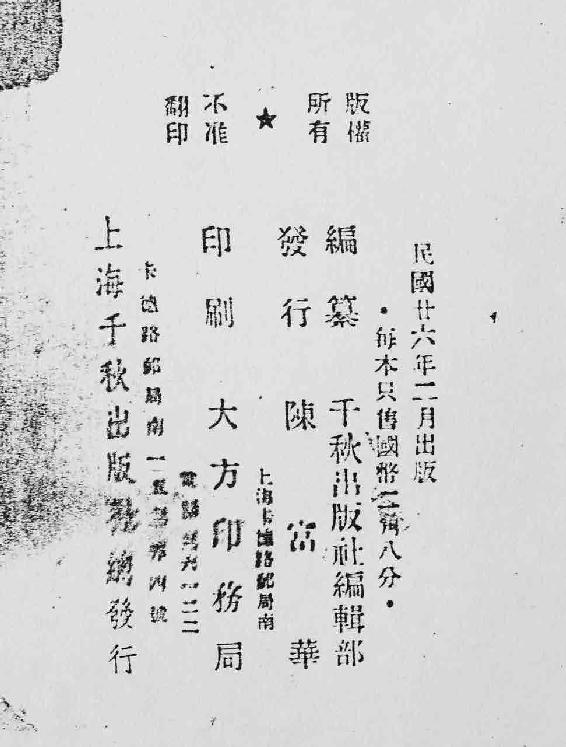 版權
所有
★
不准
翻印
民國廿六年二月出版
•每本只售國幣二角八分•
編纂 千秋出版社編輯部
發行 陳富華
上海卡德路郵局南
印刷 大方印務局
電話 六一二二
卡德路郵局南一 號
上海千秋出版社總發行